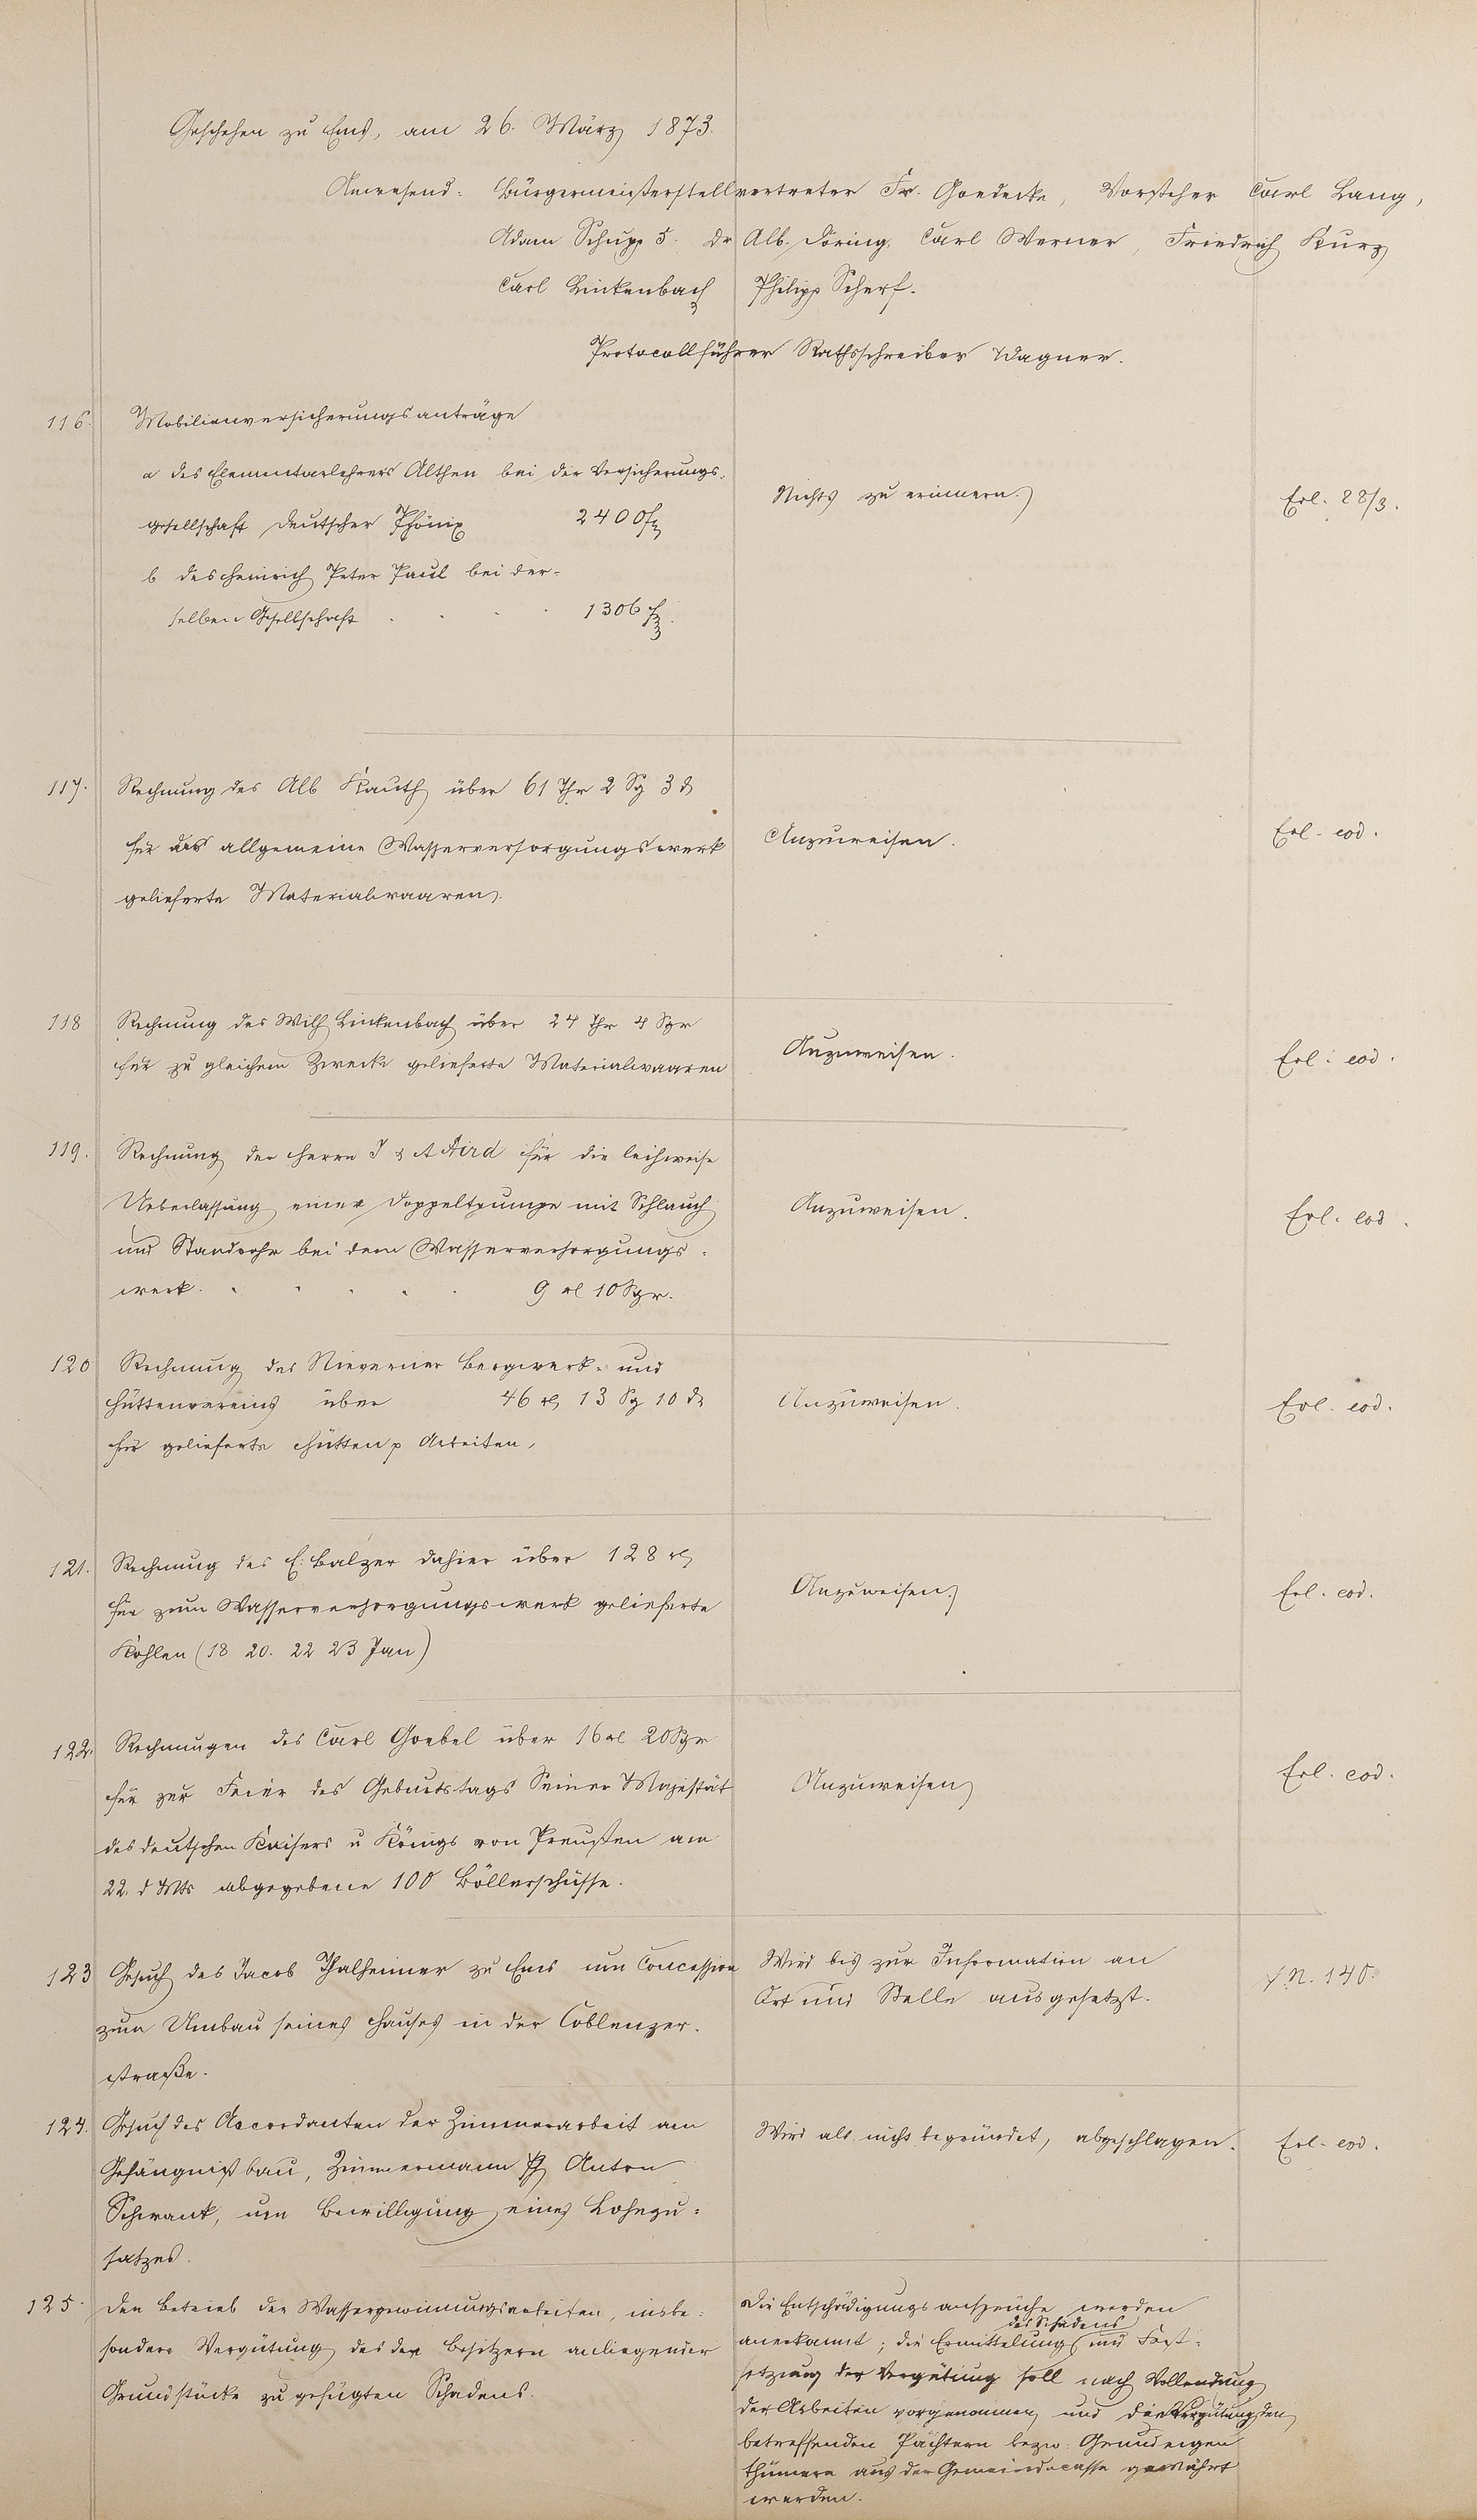 Geschehen zu Ems, am 26. März 1873.
Anwesend: Bürgermeisterstellvertreter Fr. Goedecke, Vorsteher Carl Lang,
Adam Schupp 5. Dr Alb. Döring, Carl Werner, Friedrich Kurz
Carl Linkenbach Philipp Scherf.
Protocollführer Rathsschreiber Wagner.
116. Mobilienversicherungsanträge
a des Elementarlehrers Althen bei der Versicherungs-
gesellschaft Deutscher Phönix 2400 f
b des Heinrich Peter Paul bei der-
selben Gesellschaft . . . . 1306 f
Nichts zu erinnern.
Erl. 28/3.
117. Rechnung des Alb Kauth über 61 Thr 2 Sg 3 d
für das allgemeine Wasserversorgungswerk
gelieferte Materialwaaren.
Anzuweisen.
Erl. eod.
118 Rechnung des Wilh Linkenbach über 24 Thr 4 Sgr
für zu gleichem Zwecke gelieferte Materialwaaren
Anzuweisen.
Erl. eod.
119. Rechnung der Herrn J & A Aird für die leihweise
Ueberlassung einer Doppeltpumpe mit Schlauch
und Standrohr bei dem Wasserversorgungs-
werk. . . . . . 9 rl 10 Sgr.
Anzuweisen.
Erl. eod.
120 Rechnung des Nieverner Bergwerk- und
Hüttenvereins über 46 rl 13 Sg 10 d
für gelieferte Hütten p Arbeiten,
Anzuweisen.
Erl. eod.
121. Rechnung des E. Balzer dahier über 128 rl
für zum Wasserversorgungswerk gelieferte
Kohlen (18 20. 22 23 Jan)
Anzuweisen.
Erl. eod.
122. Rechnungen des Carl Goebel über 16 rl 20 Sgr
für zur Feier des Geburtstags Seiner Majestät
des deutschen Kaisers u Königs von Preußen am
22. d Mts abgegebene 100 Böllerschüsse.
Anzuweisen
Erl. eod.
123 Gesuch des Jacob Thalheimer zu Ems um Concession
zum Umbau seines Hauses in der Coblenzer-
straße.
Wird bis zur Information an
Ort und Stelle ausgesetzt.
N. 140.
124. Gesuch des Accordanten der Zimmerarbeit am
Gefängnißbau, Zimmermann Ph Anton
Schwank, um Bewilligung eines Lohnzu-
satzes.
Wird als nicht begründet, abgeschlagen.
Erl. eod.
125. Den Betrieb der Wassergewinnungsarbeiten, insbe-
sondere Vergütung des den Besitzern anliegender
Grundstücke zugefügten Schadens.
Die Entschädigungsansprüche werden
des Schadens
anerkannt; die Ermittelung und Fest-
setzung der Vergütung soll nach Vollendung
der Arbeiten vorgenommen und die Vergütung den
betreffenden Pächtern bezw. Grundeigen
thümern aus der Gemeindecasse gewährt
werden.